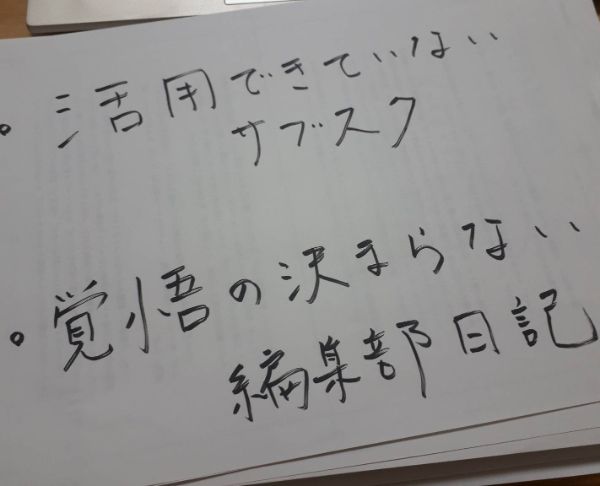 。活用できていない
サブスク
。覚悟の決まらない
編集部日記